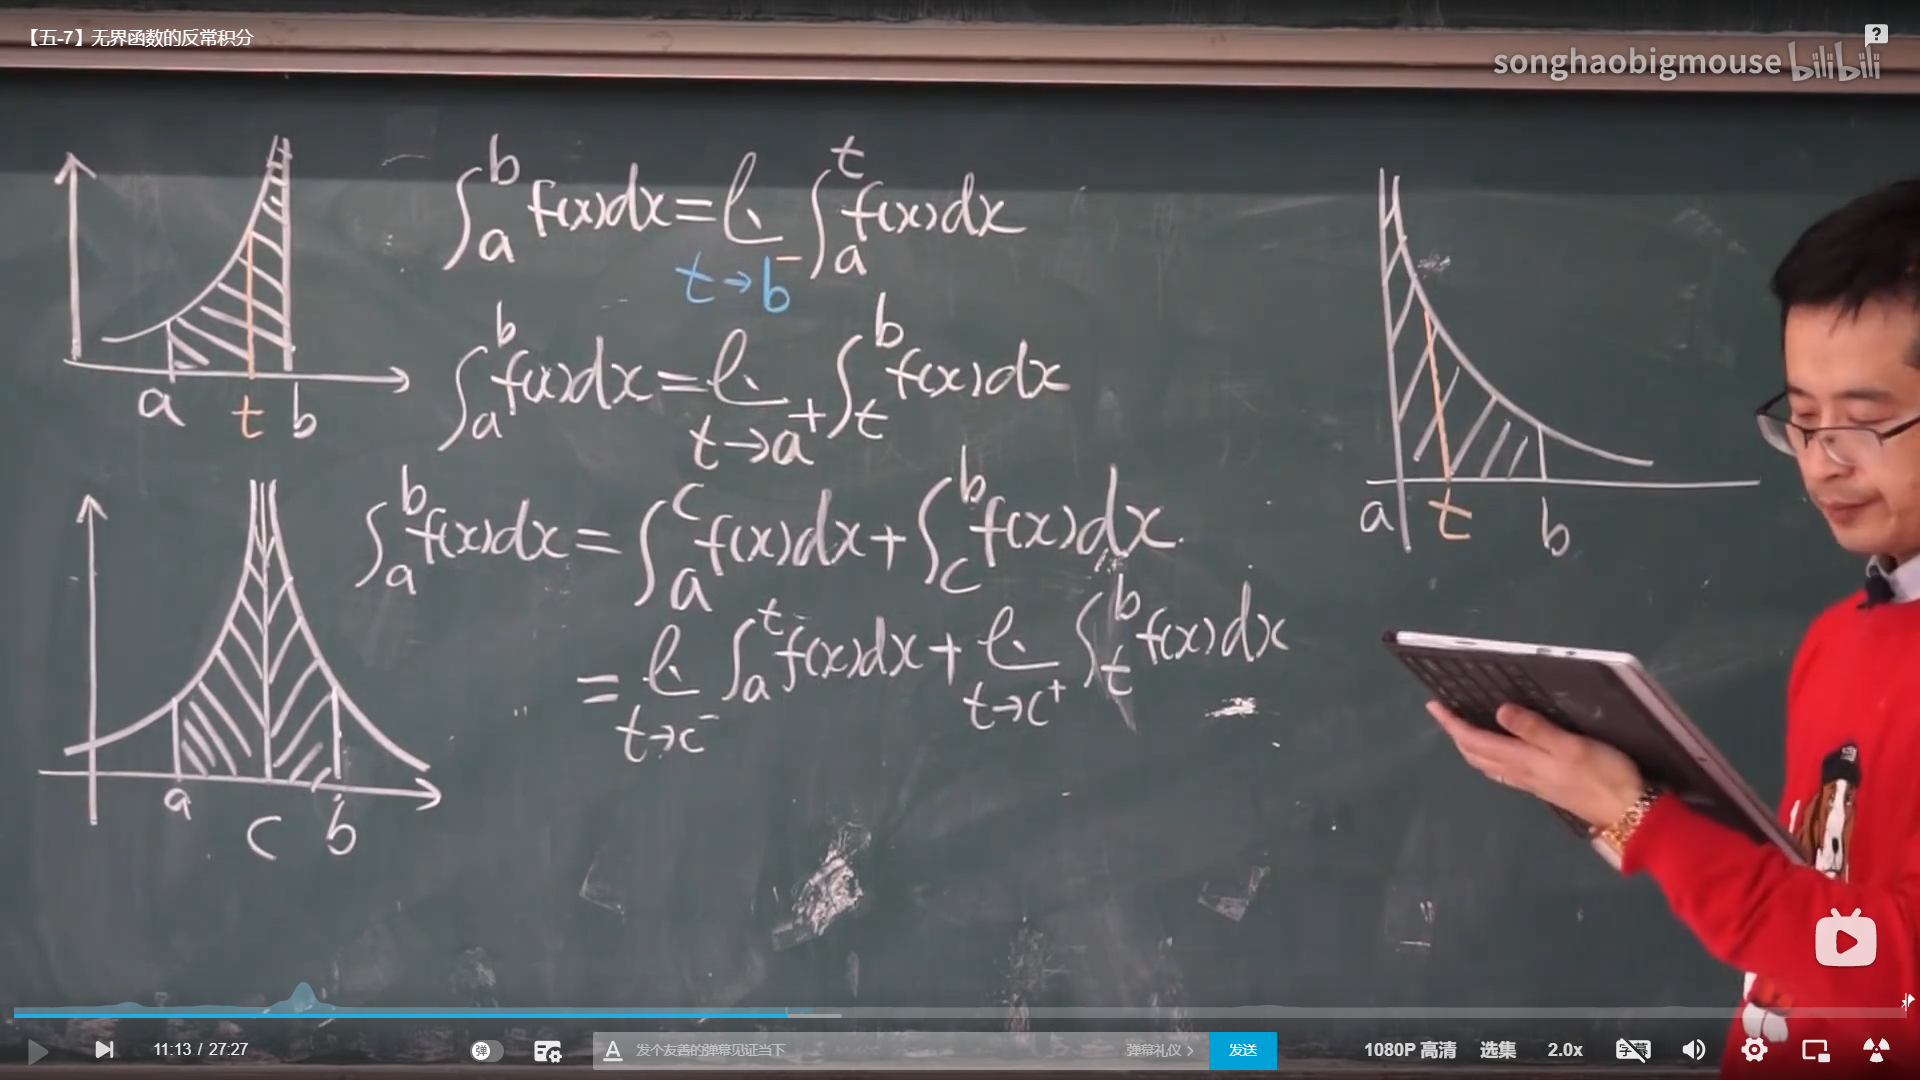 【五-7】无界函数的反常积分
songhaobigmouse bilibili
?
∫_a^b f(x)dx = l. ∫_a^t f(x)dx
t→b⁻
a t b
∫_a^b f(x)dx = l. ∫_t^b f(x)dx
t→a⁺
a t b
∫_a^b f(x)dx = ∫_a^c f(x)dx + ∫_c^b f(x)dx.
= l. ∫_a^t f(x)dx + l. ∫_t^b f(x)dx
t→c⁻ t→c⁺
a c b
11:13 / 27:27
弹
A 发个友善的弹幕见证当下
弹幕礼仪 >
发送
1080P 高清
选集
2.0x
字幕